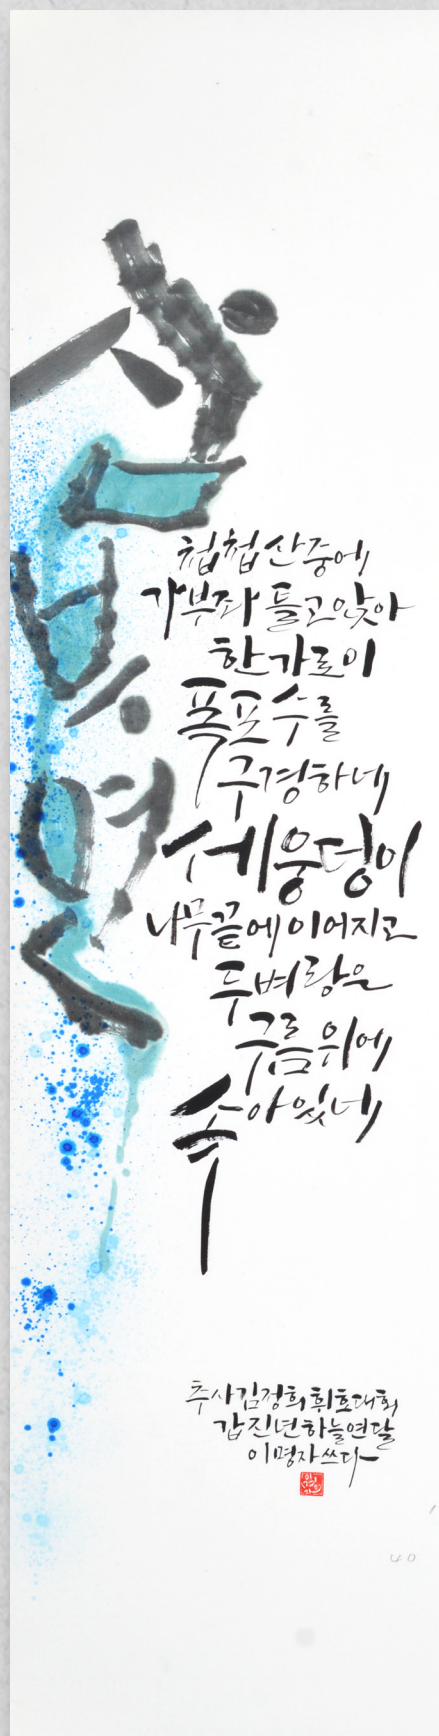 산방벽
첩첩산중에
가부좌 틀고 앉아
한가로이
폭포수를
구경하네
세웅덩이
나무끝에 이어지고
두벼랑은
구름위에
솟아있네
추사김정희휘호대회
갑진년하늘연달
이명자쓰다
40